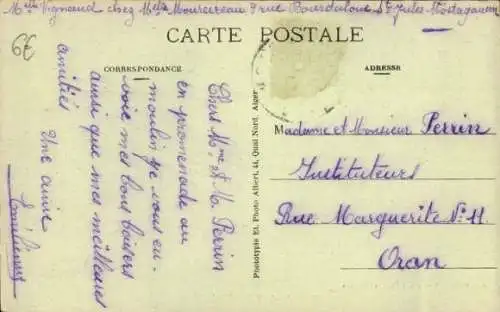 Melle Vignaud chez Melle Moureireau 7 rue Bourdaloue St Jules Mostaganem
6€
CARTE POSTALE
CORRESPONDANCE
ADRESSE
Chers Mme et M. Perrin
en promenade au
moulin je vous en-
voie mes bons baisers
ainsi que mes meilleures
amitiés
Une amie
Phototypie Et. Photo Albert, 44, Quai Nord, Alger
Madame et Monsieur Perrin
Instituteurs
Rue Marguerite No 11
Oran